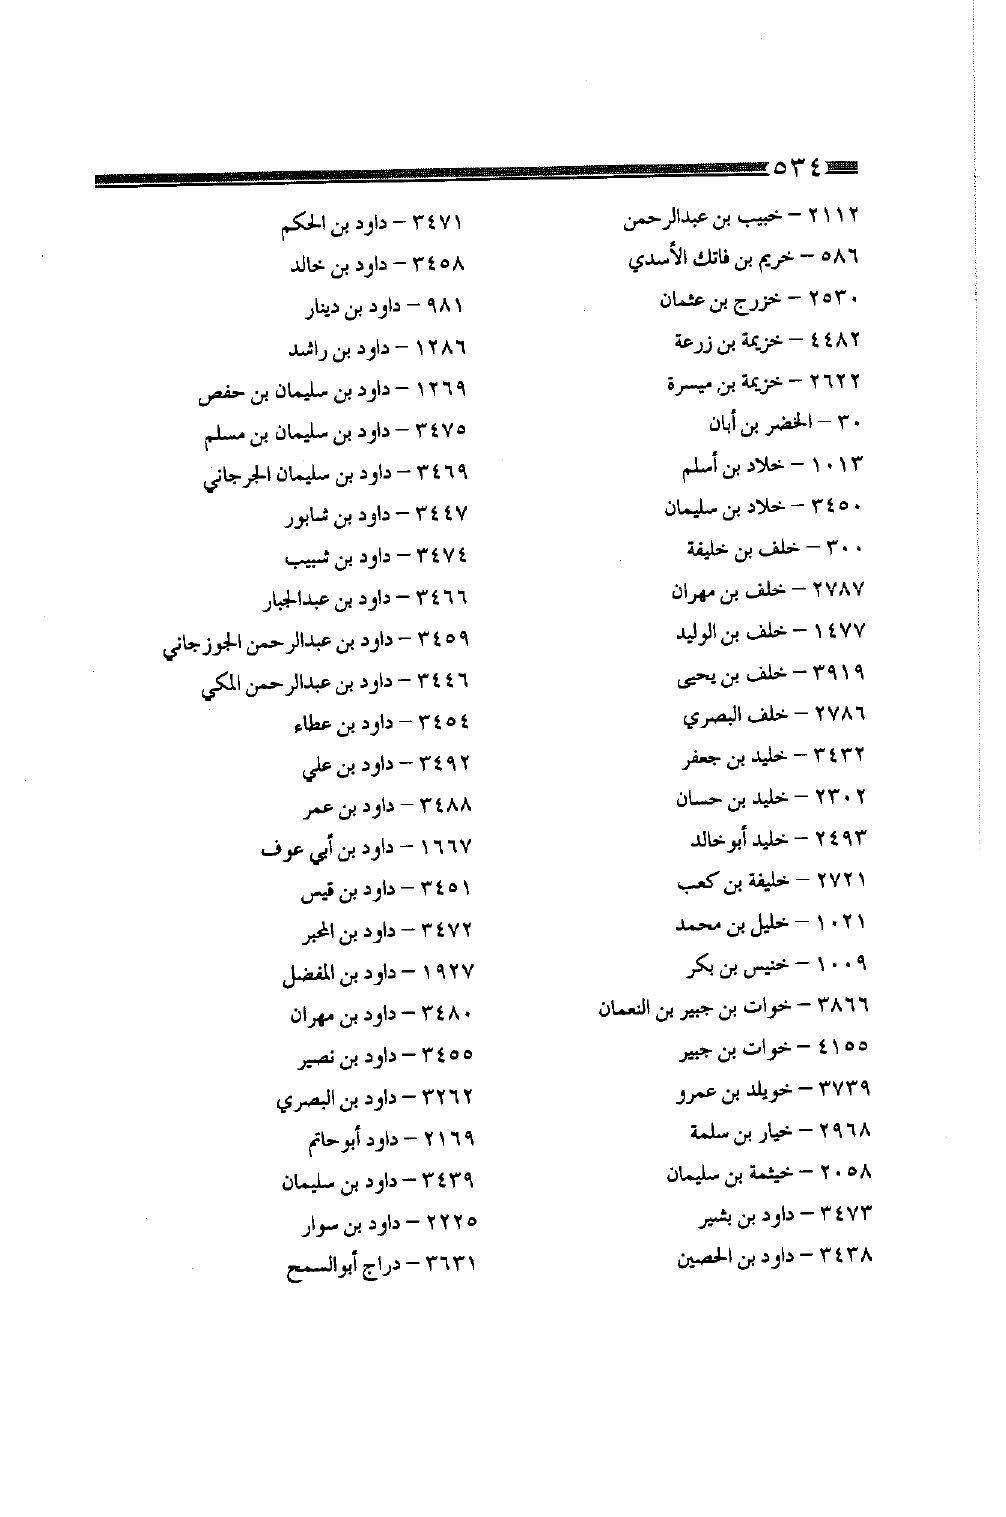 ٥٣٤
٢١١٢ – خبيب بن عبدالرحمن
٥٨٦ – خريم بن فاتك الأسدي
٢٥٣٠ – خزرج بن عثمان
٤٤٨٢ – خزيمة بن زرعة
٢٦٢٢ – خزيمة بن ميسرة
٣٠ – الخضر بن أبان
١٠١٣ – خلاد بن أسلم
٣٤٥٠ – خلاد بن سليمان
٣٠٠ – خلف بن خليفة
٢٧٨٧ – خلف بن مهران
١٤٧٧ – خلف بن الوليد
٣٩١٩ – خلف بن يحيى
٢٧٨٦ – خلف البصري
٣٤٣٢ – خليد بن جعفر
٢٣٠٢ – خليد بن حسان
٢٤٩٣ – خليد أبو خالد
٢٧٢١ – خليفة بن كعب
١٠٢١ – خليل بن محمد
١٠٠٩ – خنيس بن بكر
٣٨٦٦ – خوات بن جبير بن النعمان
٤١٥٥ – خوات بن جبير
٣٧٣٩ – خويلد بن عمرو
٢٩٦٨ – خيار بن سلمة
٢٠٥٨ – خيثمة بن سليمان
٣٤٧٣ – داود بن بشير
٣٤٣٨ – داود بن الحصين
٣٤٧١ – داود بن الحكم
٣٤٥٨ – داود بن خالد
٩٨١ – داود بن دينار
١٢٨٦ – داود بن راشد
١٢٦٩ – داود بن سليمان بن حفص
٣٤٧٥ – داود بن سليمان بن مسلم
٣٤٦٩ – داود بن سليمان الجرجاني
٣٤٤٧ – داود بن شابور
٣٤٧٤ – داود بن شبيب
٣٤٦٦ – داود بن عبدالجبار
٣٤٥٩ – داود بن عبدالرحمن الجوزجاني
٣٤٤٦ – داود بن عبدالرحمن المكي
٣٤٥٤ – داود بن عطاء
٣٤٩٢ – داود بن علي
٣٤٨٨ – داود بن عمر
١٦٦٧ – داود بن أبي عوف
٣٤٥١ – داود بن قيس
٣٤٧٢ – داود بن المحبر
١٩٢٧ – داود بن المفضل
٣٤٨٠ – داود بن مهران
٣٤٥٥ – داود بن نصير
٣٢٦٢ – داود بن البصري
٢١٦٩ – داود أبو حاتم
٣٤٣٩ – داود بن سليمان
٢٢٢٥ – داود بن سوار
٣٦٣١ – دراج أبوالسمح